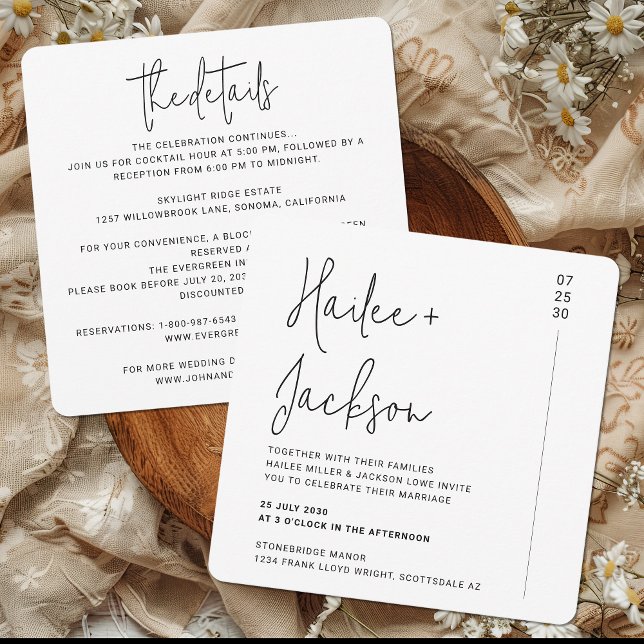 thedetails
THE CELEBRATION CONTINUES...
JOIN US FOR COCKTAIL HOUR AT 5:00 PM, FOLLOWED BY A
RECEPTION FROM 6:00 PM TO MIDNIGHT.
SKYLIGHT RIDGE ESTATE
1257 WILLOWBROOK LANE, SONOMA, CALIFORNIA
FOR YOUR CONVENIENCE, A BLOC
RESERVED A
THE EVERGREEN IN
PLEASE BOOK BEFORE JULY 20, 203
DISCOUNTED
RESERVATIONS: 1-800-987-6543
WWW.EVERGRE
FOR MORE WEDDING D
WWW.JOHNAND
Hailee +
Jackson
07
25
30
TOGETHER WITH THEIR FAMILIES
HAILEE MILLER & JACKSON LOWE INVITE
YOU TO CELEBRATE THEIR MARRIAGE
25 JULY 2030
AT 3 O'CLOCK IN THE AFTERNOON
STONEBRIDGE MANOR
1234 FRANK LLOYD WRIGHT, SCOTTSDALE AZ